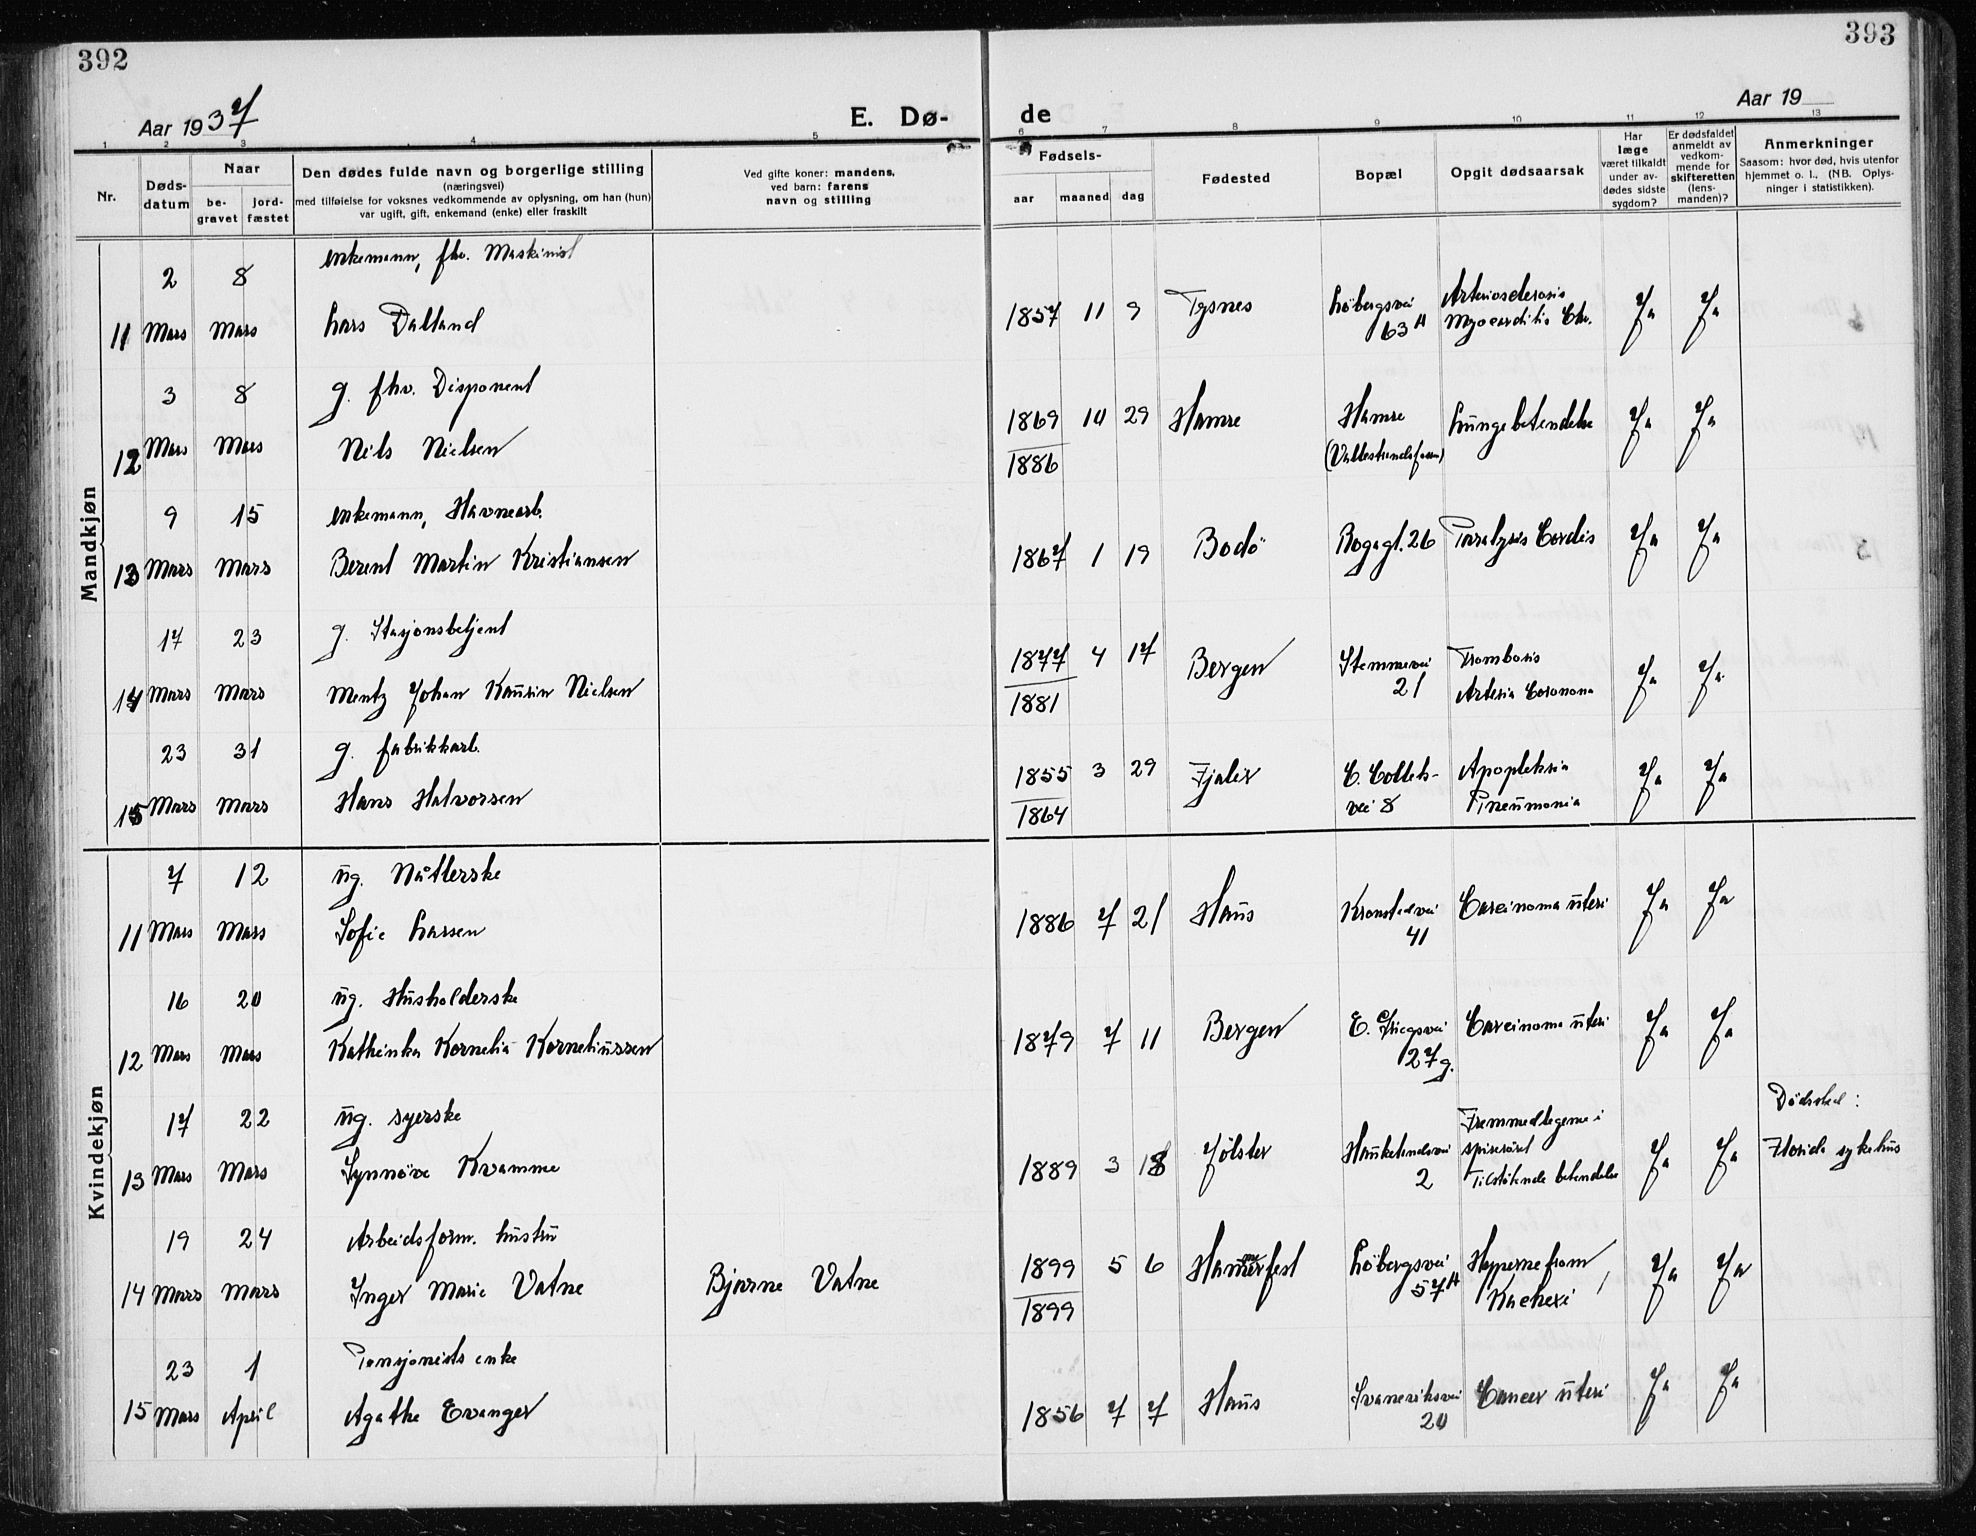 392
393
Aar 1937
E. Dø-
de
Aar 19
1 2 3 4 5 6 7 8 9 10 11 12 13
Nr.
Døds-
datum
Naar
be-
gravet
jord-
fæstet
Den dødes fulde navn og borgerlige stilling
(næringsvei)
med tilføielse for voksnes vedkommende av oplysning, om han (hun)
var ugift, gift, enkemand (enke) eller fraskilt
Ved gifte koner: mandens,
ved barn: farens
navn og stilling
Fødsels-
aar maaned dag
Fødested
Bopæl
Opgit dødsaarsak
Har
læge
været tilkaldt
under av-
dødes sidste
sygdom?
Er dødsfaldet
anmeldt av
vedkom-
mende for
skifteretten
(lens-
manden)?
Anmerkninger
Saasom: hvor død, hvis utenfor
hjemmet o. l., (NB. Oplys-
ninger i statistikken).
Mandkjøn
2 8 enkemann, fhv. Maskinist
11 Mars Mars Lars Dalland 1857 11 9 Tysnes Löbergsvei 63 A Arteriosclerosis Myocarditis Chr. Ja Ja
3 8 g. fhv. Disponent
12 Mars Mars Nils Nielsen 1869 10 29 Hamre Hamre Lungebetendelse Ja Ja
1886 (Vallestrandsfossen)
9 15 enkemann, Havnearb.
13 Mars Mars Berent Martin Kristiansen 1867 1 19 Bodö Rogagt. 26 Paralysis Cordis Ja Ja
17 23 g. Stasjonsbetjent
14 Mars Mars Mentz Johan Kausin Nielsen 1877 4 17 Bergen Stemmevei 21 Trombosis Arteria Coronona Ja Ja
1881
23 31 g. fabrikkarb.
15 Mars Mars Hans Halvorsen 1855 3 29 Fjaler C. Collets- vei 8 Apopleksia Pneumonia Ja Ja
1864
Kvindekjøn
7 12 ug. Nåtlerske
11 Mars Mars Sofie Larsen 1886 7 21 Haus Kronstadvei 41 Carcinoma uteri Ja Ja
16 20 ug. Husholderske
12 Mars Mars Kathinka Kornelia Korneliussen 1879 7 11 Bergen E. Griegsvei 27 g. Carcinoma uteri Ja Ja
17 22 ug. syerske
13 Mars Mars Synnöve Kvamme 1889 3 18 Jølster Haukelandsvei 2 Fremmedlegeme i spiseröret Tilstötende betendelse Ja Ja Dödssted: Florida sykehus
19 24 Arbeidsform. hustru
14 Mars Mars Inger Marie Vatne Bjarne Vatne 1899 5 6 Hammerfest Löbergsvei 57 A Kachexi Ja Ja
1899
23 1 Pensjonists enke
15 Mars April Agathe Evanger 1856 7 7 Haus Svaneviksvei 20 Cancer uteri Ja Ja